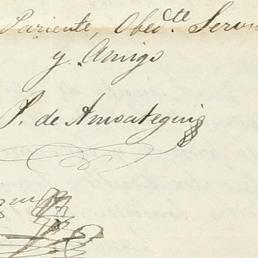 Pariente, Obed.te Servi
y Amigo
P. de Amoategui